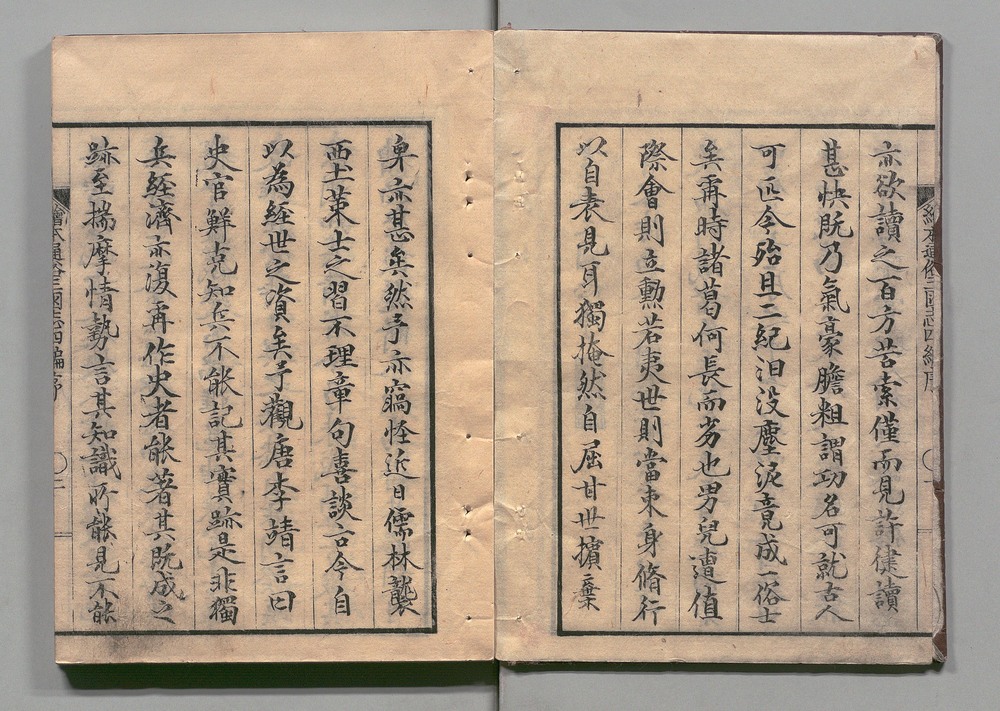 亦欲讀之百方苦索僅而見許健讀
甚快既乃氣豪膽粗謂功名可就古人
可匹今殆且二紀汩没塵泥竟成一俗士
矣再時諸葛何長而劣也男兒遭值
際會則立勲若夷世則當束身脩行
以自表見耳獨掩然自屈甘世擯棄
繪本通俗三國志四編序
一
昇亦甚矣然予亦竊怪近日儒林襲
西土策士之習不理章句喜談古今自
以為経世之資矣予觀唐李靖言曰
史官鮮克知兵不能記其實跡是非獨
兵経濟亦復再作史者能著其既成之
跡至揣摩情勢言其知識所能見不能
繪本通俗三國志四編序
二